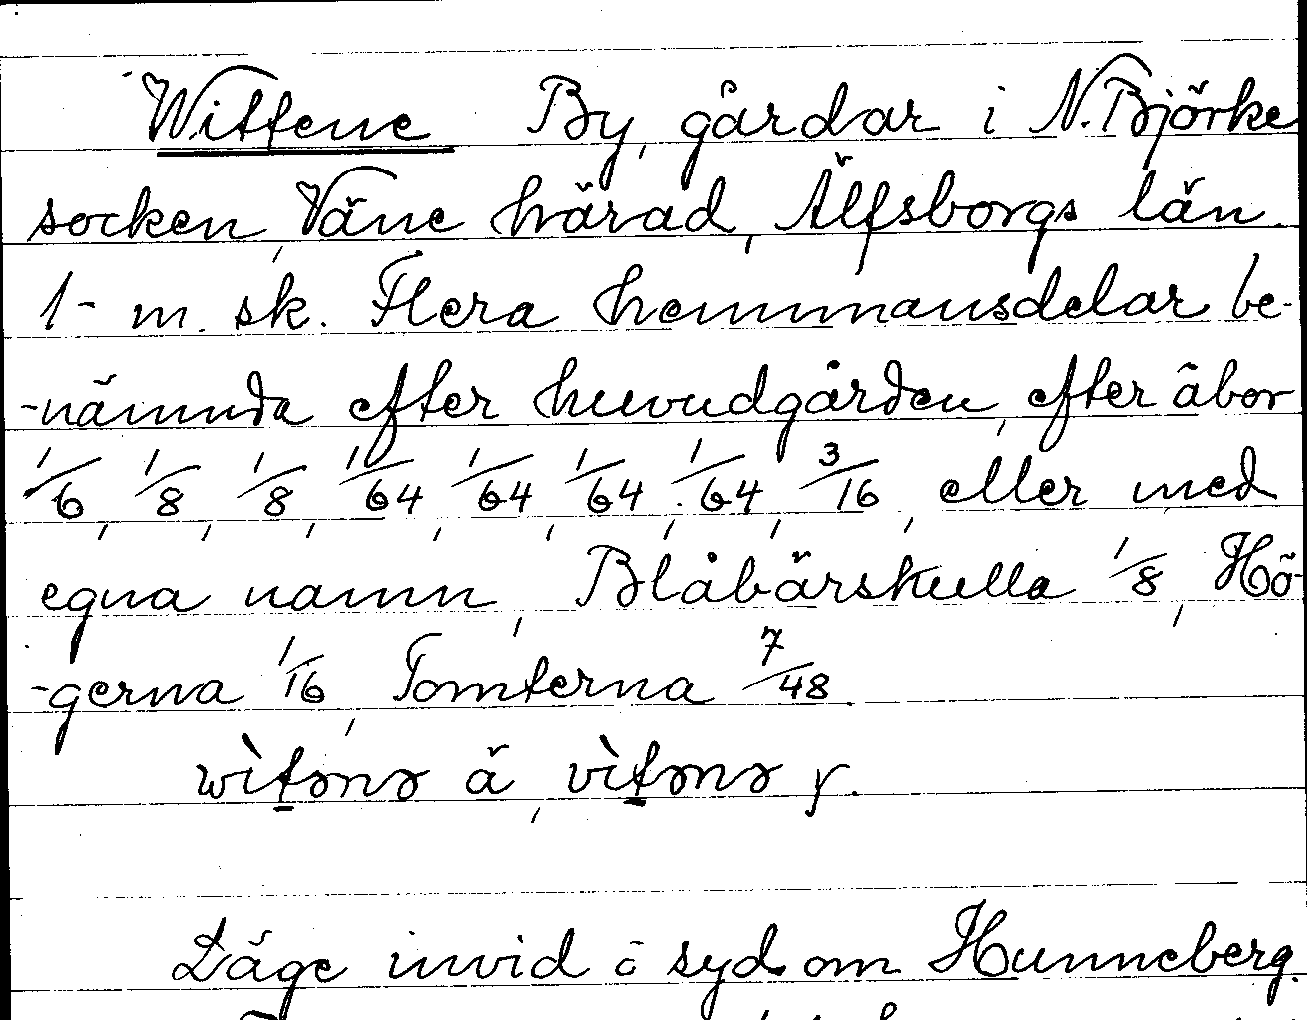 Wittene By, gårdar i N. Björke
socken, Väne härad, Älfsborgs län.
1- m. sk. Flera hemmansdelar be-
-nämnda efter huvudgården, efter åbor
1/6, 1/8, 1/8, 11/64, 1/64, 1/64, 1/64, 3/16, eller med
egna namn, Blåbärskulla 1/8, Hö-
-gerna 1/16, Tomterna 7/48.
wìtənə ä, vìtənə y.
Läge invid ö syd om Hunneberg.